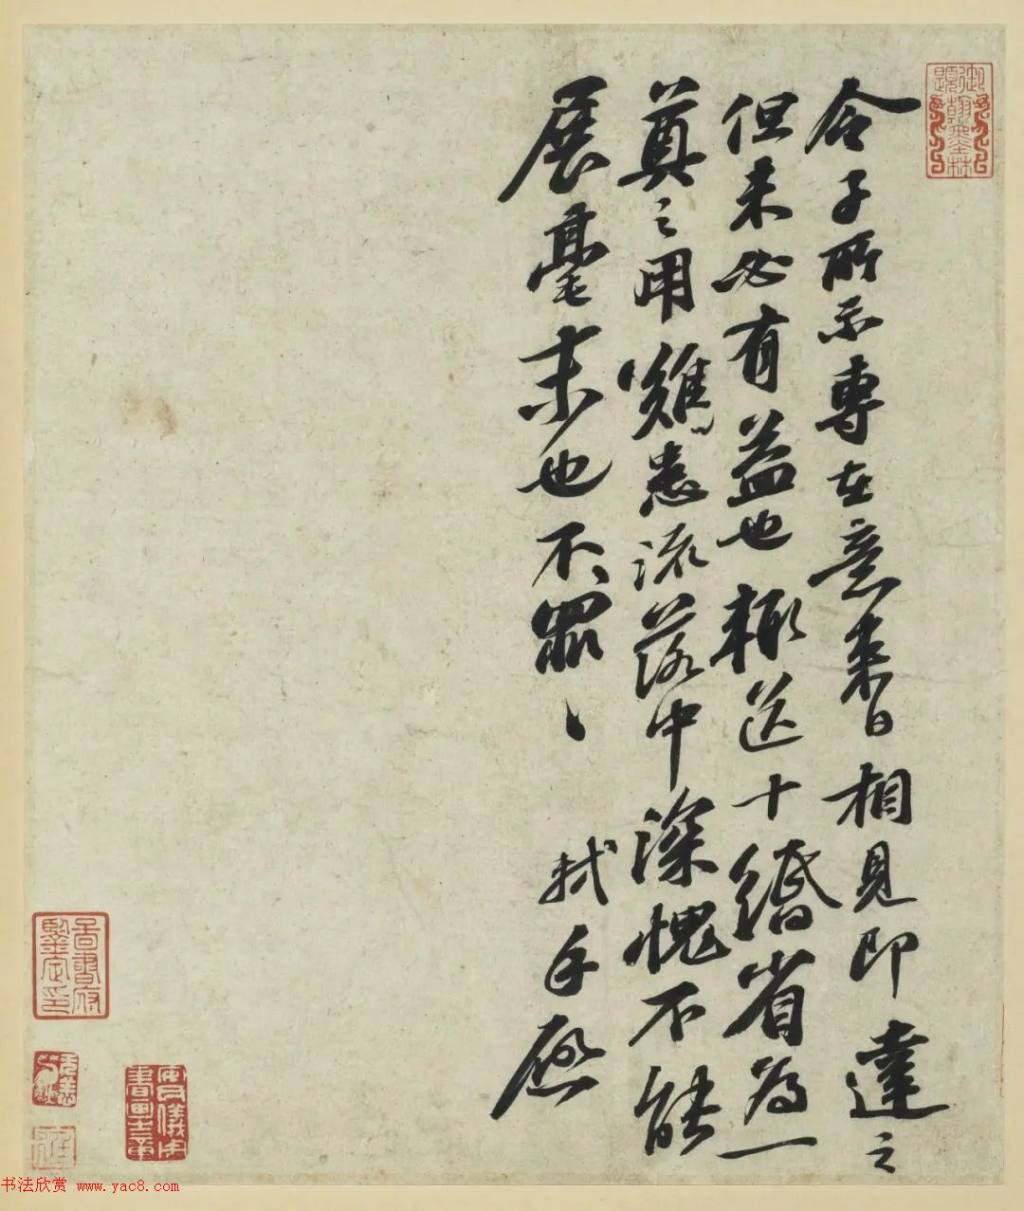 令子所示專在意来日相見即達之
但未必有益也輒送十緡省為一
奠之用難患流落中深愧不能
展毫末也不罪〻 軾手啓
書法欣赏 www.yac8.com